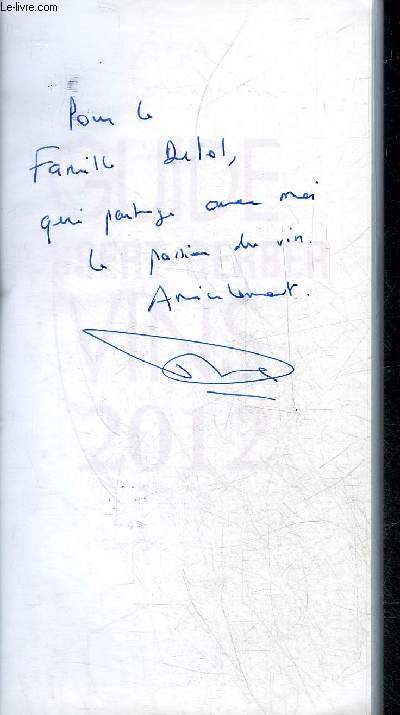 Le-livre.com
Pour la
Famille Delol,
qui partage avec moi
la passion du vin.
Amicalement.
GUIDE
GERBER
VINS
2012